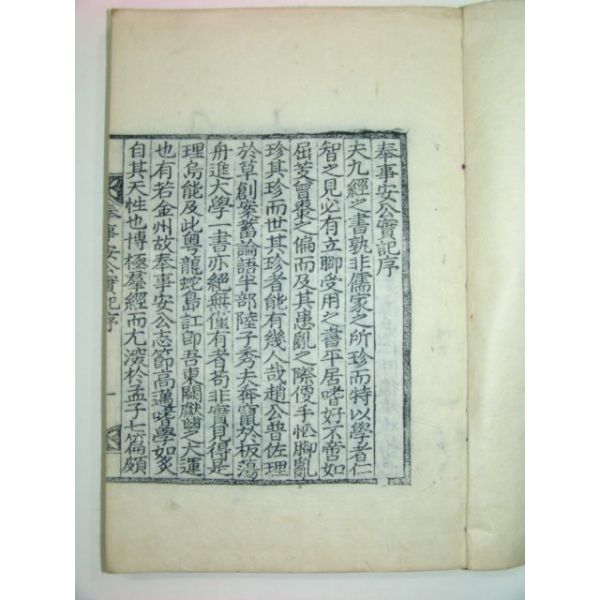 奉事安公實記序
夫九經之書孰非儒家之所珍而特以學者仁
智之見必有立脚受用之書平居嗜好不啻如
屈芰曾棗之偏而及其患亂之際僾手忙脚亂
珍其珍而世其珍者能有幾人哉趙公普佐理
於草創案蓄論語半部陸子秀夫奔竄於板蕩
舟進大學一書亦絕無僅有者苟非實見得是
理烏能及此粤龍蛇島訌即吾東闢獻以大運
也有若金州故奉事安公志節高邁嗜學如炙
自其天性也博極羣經而尤深於孟子七篇頗
奉事安公實記序
一